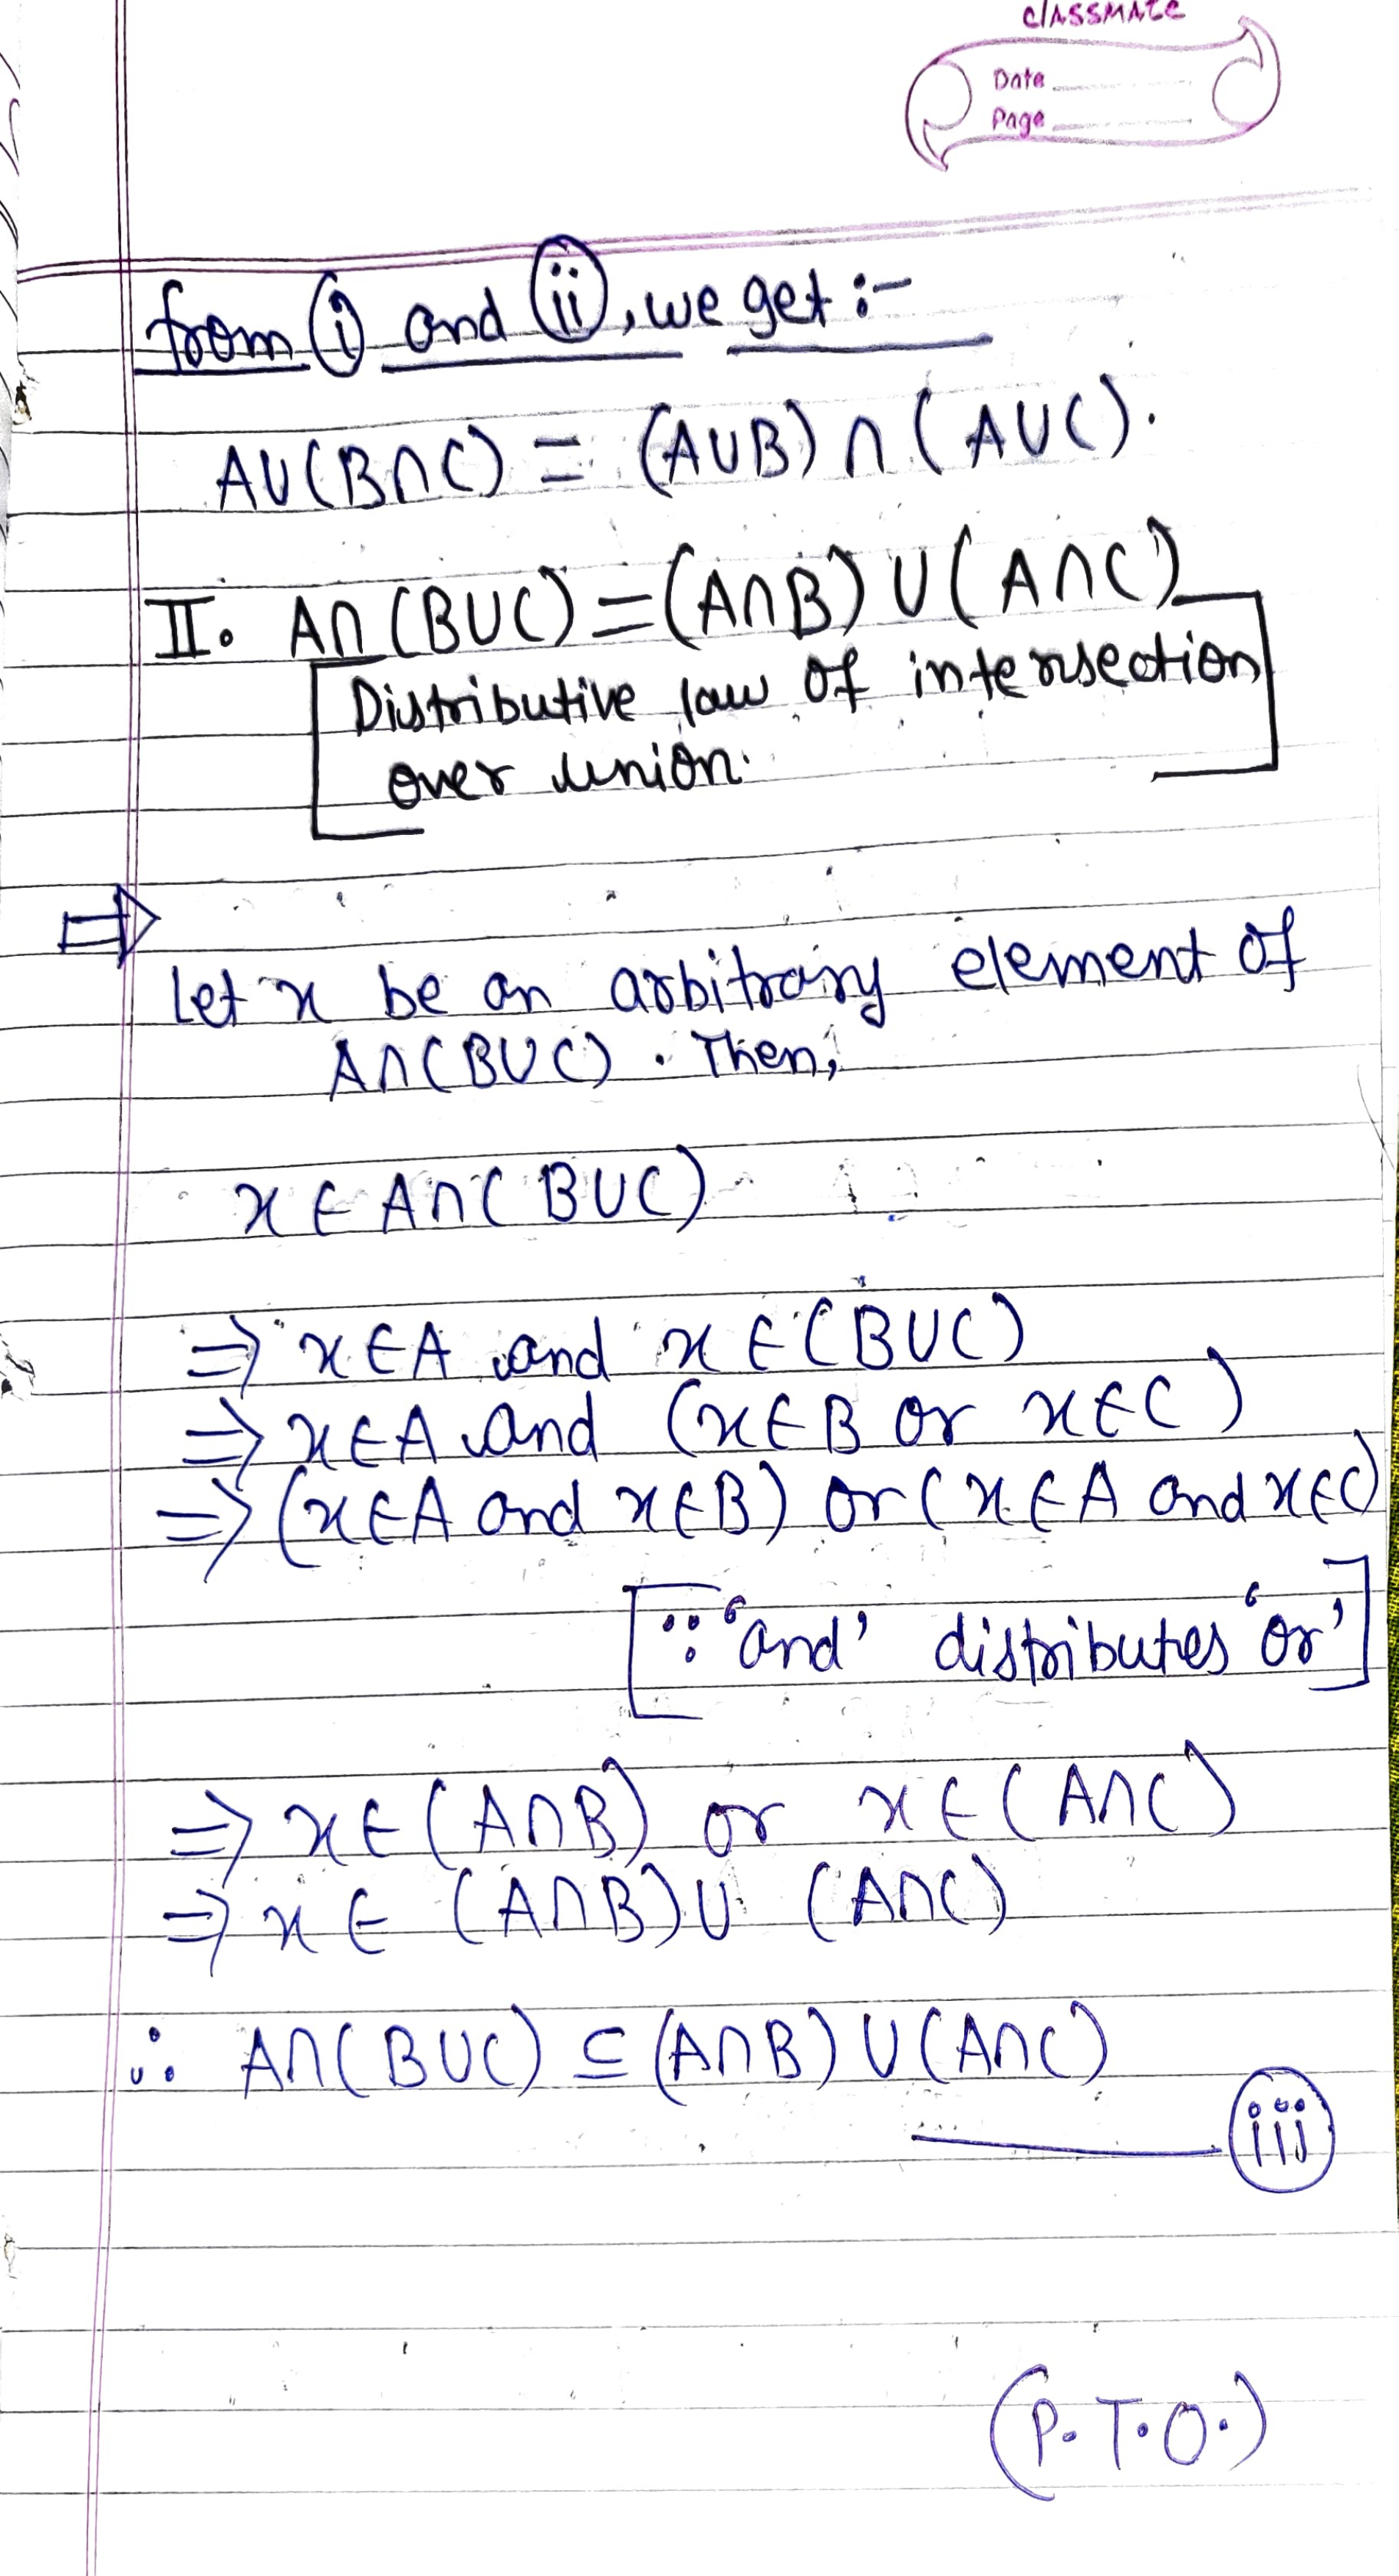 classmate
Date
Page
from (i) and (ii), we get :-
A∪(B∩C) = (A∪B)∩(A∪C).
II. A∩(B∪C) = (A∩B)∪(A∩C)
[Distributive law of intersection
over union.]
⇒
Let x be an arbitrary element of
A∩(B∪C). Then,
x ∈ A∩(B∪C)
⇒ x∈A and x∈(B∪C)
⇒ x∈A and (x∈B or x∈C)
⇒ (x∈A and x∈B) or (x∈A and x∈C)
[∵ 'and' distributes 'or']
⇒ x∈(A∩B) or x∈(A∩C)
⇒ x∈ (A∩B)∪(A∩C)
∴ A∩(B∪C) ⊆ (A∩B)∪(A∩C)
(iii)
(P.T.O.)